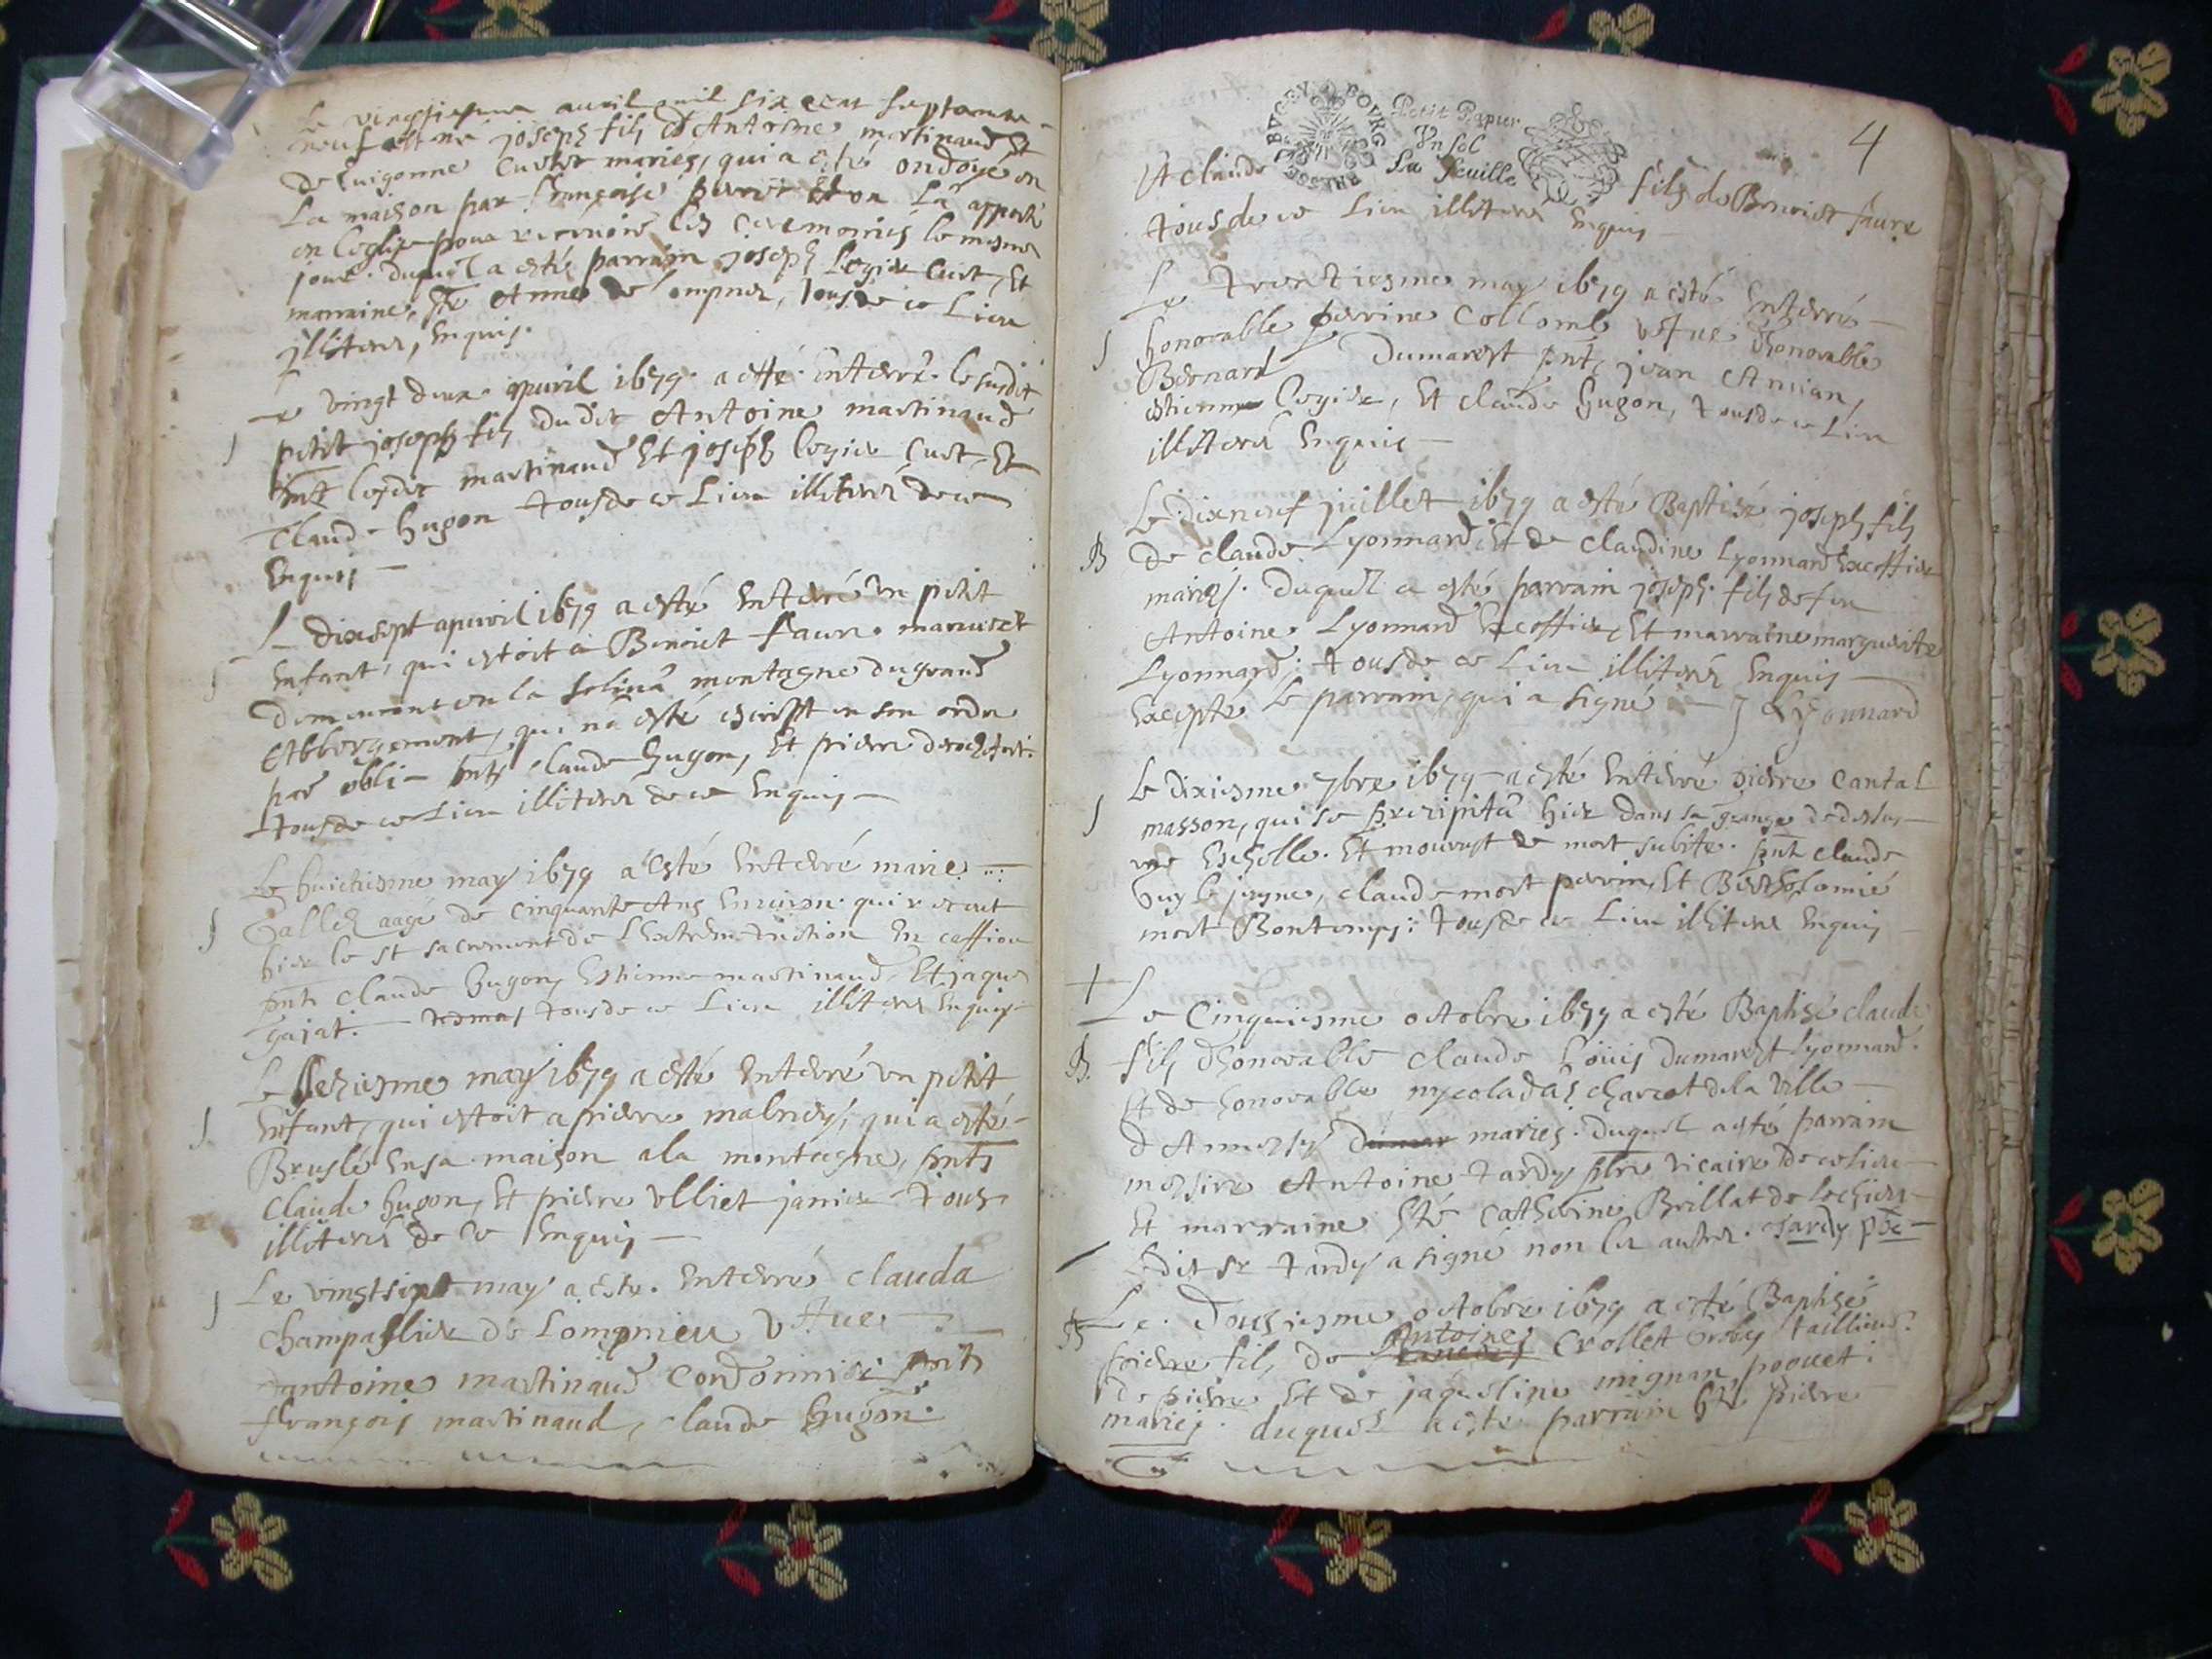 Le vingtiesme auril mil six cent septante
neuf est né joseph fils d'Antoine martinaud Et
de Guigonne Curtet mariés, qui a esté ondoyé en
La maison par françoise perrier Et on La apporté
en leglise pour receuoir les ceremonies le mesme
jour. duquel a esté parrain joseph Cust, Et
marraine, Anne de Lompnes, tous de ce Lieu
jlliteres, Enquis.
Le vingt deux apuril 1679. a esté. Enterré. le susdit
petit joseph fils dudit Antoine martinaud
pnt ledit martinaud Et joseph Cust, Et
Claude hugon tous de ce Lieu illiterés de ce
Enquis
Le dixsept apuril 1679 a esté Enterré un petit
Enfant, qui estoit a Benoict faure
demeurant en la montagne du grand
Abbergement, qui na esté escript en son ordre
par obli pnts Claude hugon, Et pierre
tous de ce Lieu illiteres de ce Enquis
Le huictiesme may 1679 a Esté Enterré marie
aagé de cinquante Ans Enuiron. qui receut
hier le st sacrement de LExtreme Unction
pnts Claude hugon, Estienne martinaud, Et jaques
gajat. tous de ce Lieu illiteres Enquis
Le seziesme may 1679 a esté Enterré un petit
Enfant, qui estoit a pierre qui a esté
Bruslé En sa maison a la montagne, pnts
Claude hugon, Et pierre ulliet janier tous
illiterés de ce Enquis
Le vingtsept may a esté. Enterré clauda
de Lompnieu vefue
dantoine martinaud Cordonnier pnts
françois martinaud, Claude hugon
4
BOVRG
Petit Papier
Vn sol
La feuille
Et claude fils de Benoict faure
tous de ce Lieu illiteres Enquis
Le trentiesme may 1679 a esté Enterré
honorable perrine Collomb vefue dhonorable
Bernard Dumarest pnt, jean
Estienne Et Claude hugon, tous de ce Lieu
illiterés Enquis
Le dixneuf juillet 1679 a esté Baptisé joseph fils
B de claude Lyonnard Et de claudine Lyonnard
mariés. duquel a esté parrain joseph fils de feu
Antoine Lyonnard Et marraine marguerite
Lyonnard; tous de ce Lieu illiterés Enquis
Excepté le parrain, qui a signé J Lyonnard
Le dixiesme 7bre 1679 a esté Enterré pierre Cantal
masson, qui se precipita hier dans sa grange de dessus
une Eschelle. Et mourust de mort subite. pnt claude
huy le jeune, claude mort perrin, Et Bertholomié
mort Bontemps; tous de ce Lieu illiteres Enquis
+
Le Cinquiesme octobre 1679 a esté Baptisé claude
B. fils dhonorable claude Louis Dumarest Lyonnard
Et de honorable nycoladas charcot de la Ville
d'Annessy mariés. duquel a esté parrain
messire Antoine tardy pbre vicaire de ce lieu
Et marraine Catherine Brillat de
Ledit sr tardy a signé non les autres. tardy pbre
Le. Douziesme octobre 1679 a esté Baptisé
pierre fils de Antoine Crollet
de pierre Et de jaqueline mignan poguet
mariés. duquel a esté parrain pierre